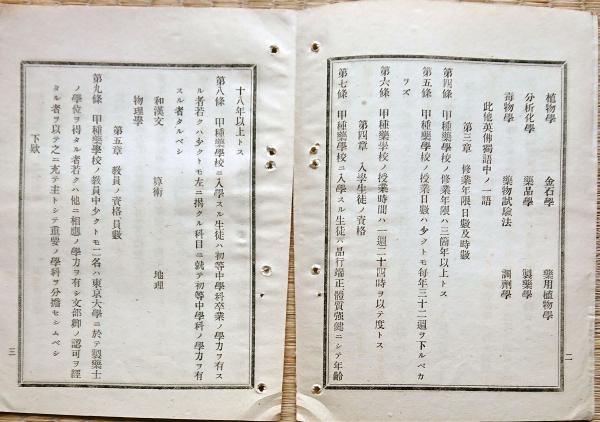 植物學 金石學 藥用植物學
分析化學 藥品學 製藥學
毒物學 藥物試驗法 調劑學
此他英佛獨語中ノ一語
第三章 修業年限日數及時數
第四條 甲種藥學校ノ修業年限ハ三箇年以上トス
第五條 甲種藥學校ノ授業日數ハ少クトモ毎年三十二週ヲ下ルベカ
ラズ
第六條 甲種藥學校ノ授業時間ハ一週二十四時ヲ以テ度トス
第四章 入學生徒ノ資格
第七條 甲種藥學校ニ入學スル生徒ハ品行端正體質强健ニシテ年齡
二
十八年以上トス
第八條 甲種藥學校ニ入學スル生徒ハ初等中學科卒業ノ學力ヲ有ス
ル者若クハ少クトモ左ニ揭クル科目ニ就テ初等中學科ノ學力ヲ有
スル者タルベシ
和漢文 算術 地理
物理學
第五章 敎員ノ資格員數
第九條 甲種藥學校ノ敎員中少クトモ二名ハ東京大學ニ於テ製藥士
ノ學位ヲ得タル者若クハ他ニ相應ノ學力ヲ有シ文部卿ノ認可ヲ經
タル者ヲ以テ之ニ充テ主トシテ重要ノ學科ヲ分擔セシムベシ
下欵
三